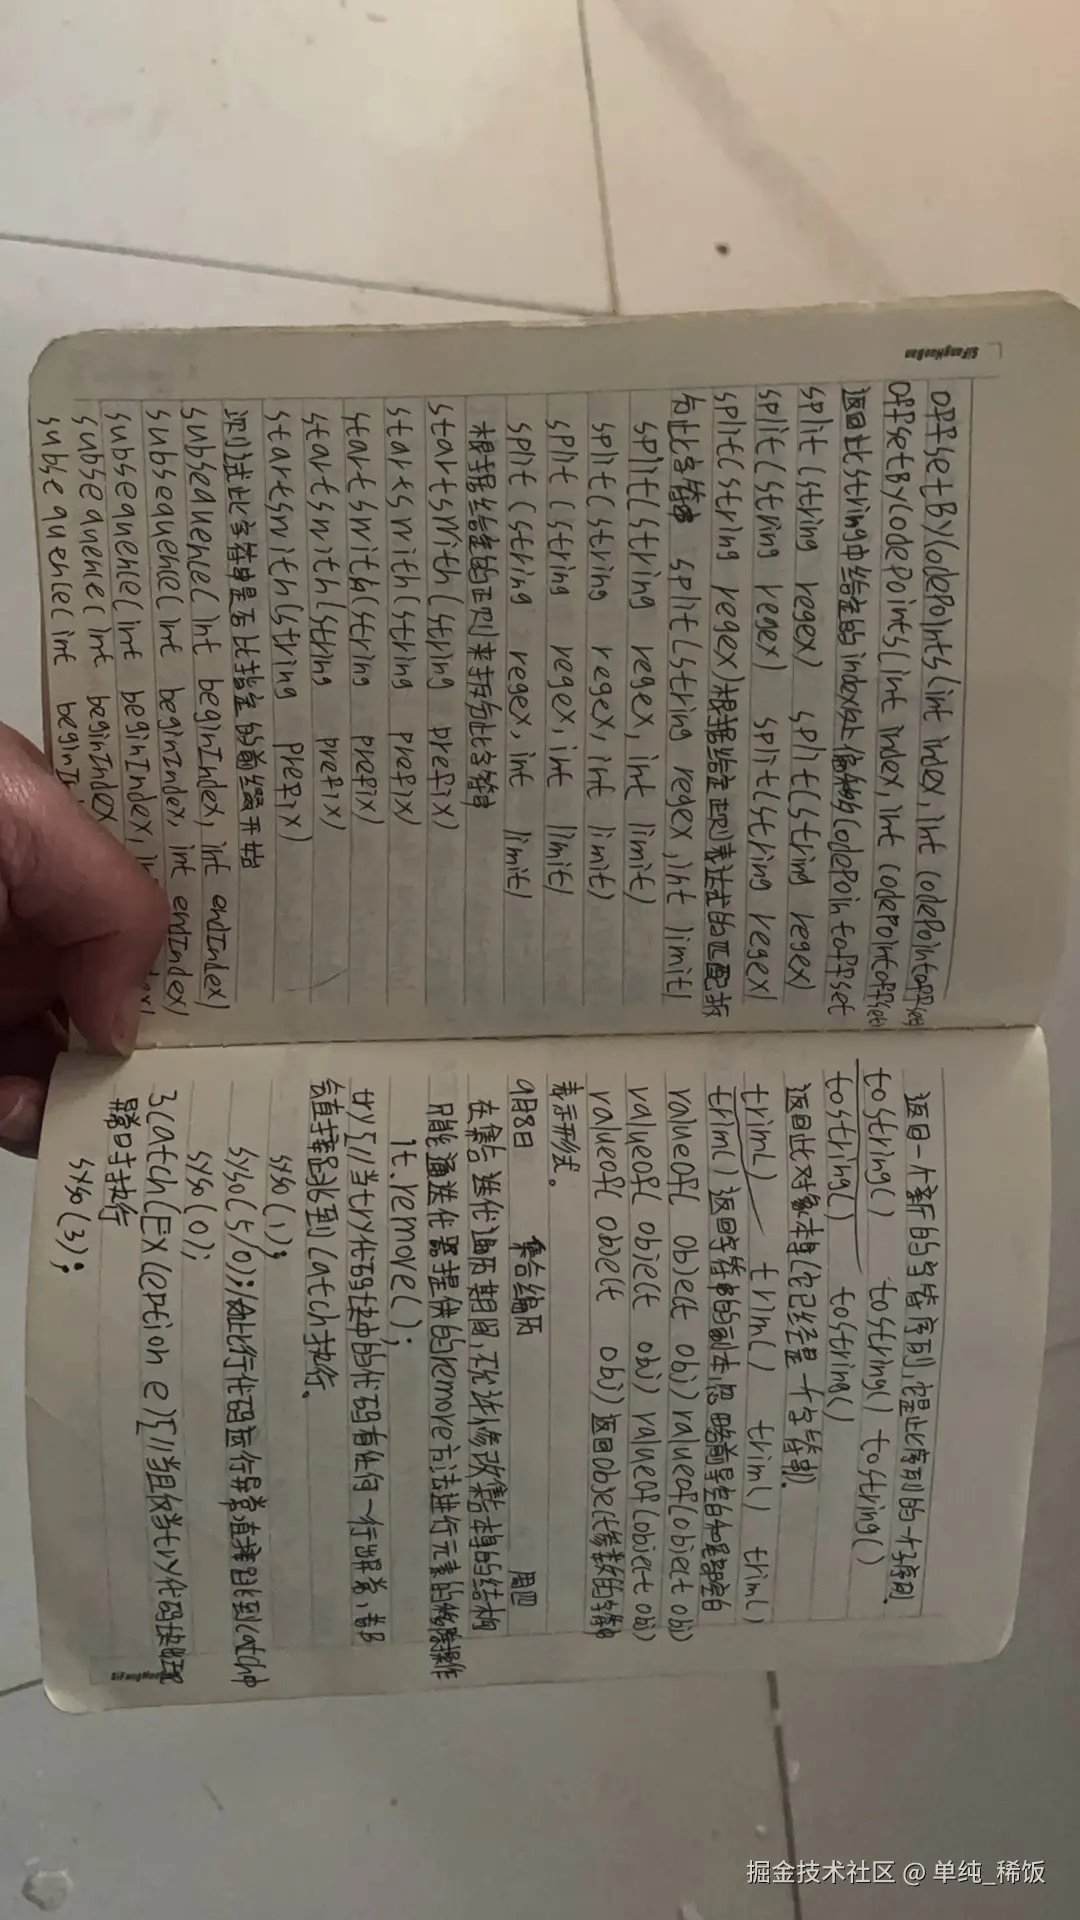 SiFangHaoBan
offsetByCodePoints(int index, int codePointoffset)
offsetByCodePoints(int index, int codePointoffset)
返回此string中给定的index处偏移的codePointoffset
split(string regex) split(string regex)
split(string regex) split(string regex)
split(string regex)根据给定正则表达式的匹配拆
分此字符串 split(string regex, int limit)
split(string regex, int limit)
split(string regex, int limit)
split(string regex, int limit)
split(string regex, int limit)
根据给定的正则来拆分此字符串
startswith(string prefix)
startswith(string prefix)
startswith(string prefix)
startswith(string prefix)
startswith(string prefix)
测试此字符串是否以指定的前缀开始
subsequence(int beginIndex, int endIndex)
subsequence(int beginIndex, int endIndex)
subsequence(int beginIndex, in
subsequence(int beginIndex
subsequence(int beginI
返回一个新的字符序列,它是此序列的一个子序列.
tostring() tostring() tostring()
tostring() tostring()
返回此对象本身(它已经是一个字符串).
trim() trim() trim() trim()
trim() 返回字符串的副本,忽略前导空白和尾部空白
valueof(object obj) valueof(object obj)
valueof(object obj) valueof(object obj)
valueof(object obj) 返回object参数的字符串
表示形式。
9月8日 集合编历 周四
在集合迭代遍历期间,不允许修改集本身的结构
只能通过迭代器提供的remove方法进行元素的移除操作
it.remove();
try{//当try代码块中的代码有任何一行出异常,都
会直接跳到catch执行。
syso(1);
syso(5/0);//如此行代码运行异常,直接跳到catch中
syso(0);
}catch(Exception e){//当且仅当try代码块出现
异常时执行
syso(3);
掘金技术社区 @ 单纯_稀饭